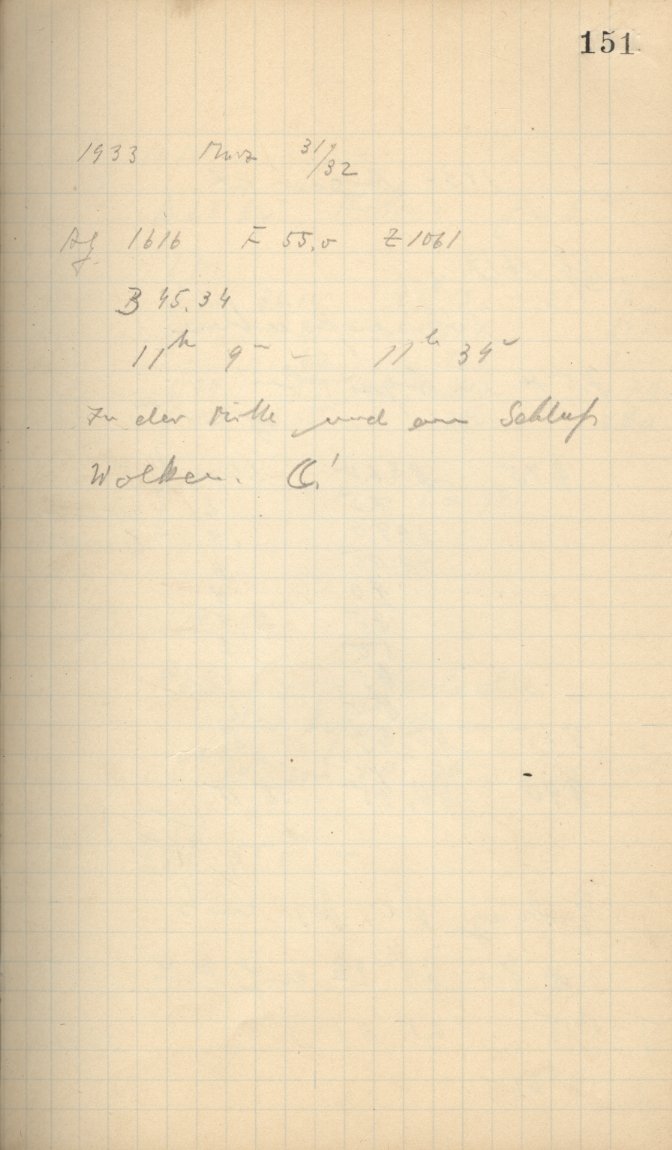 151
1933 März 31/32
Aq 1616 F 55,0 Z 1061
B 45.34
11h 9m - 11h 34m
In der Mitte und am Schluß
Wolken. ☾!